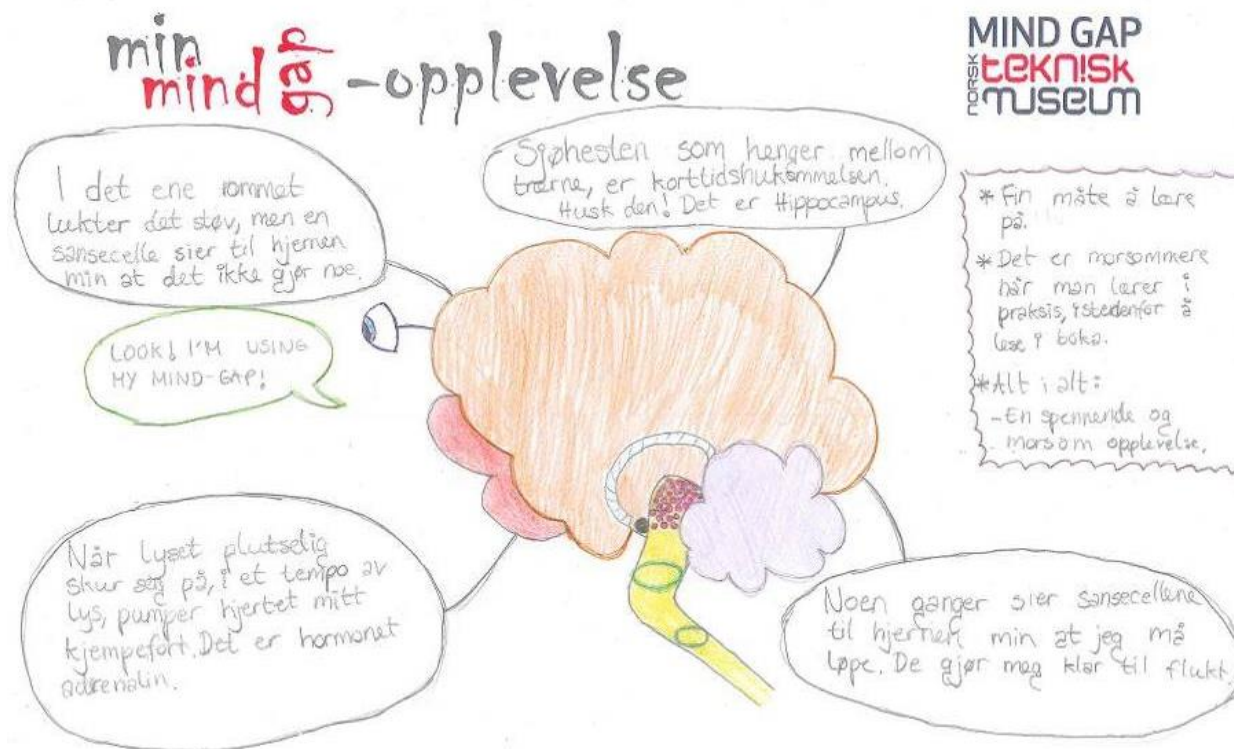 min
mind gap -opplevelse
MIND GAP
NORSK
teknisk
museum
I det ene rommet
lukter det støv, men en
sansecelle sier til hjernen
min at det ikke gjør noe.
Sjøhesten som henger mellom
trærne, er korttidshukommelsen.
Husk den! Det er Hippocampus.
* Fin måte å lære
på.
* Det er morsommere
når man lærer i
praksis, istedenfor å
lese i boka.
* Alt i alt:
- En spennende og
morsom opplevelse.
LOOK! I'M USING
MY MIND-GAP!
Når lyset plutselig
skur seg på, i et tempo av
lys, pumper hjertet mitt
kjempefort. Det er hormonet
adrenalin.
Noen ganger sier sansecellene
til hjernen min at jeg må
løpe. De gjør meg klar til flukt.